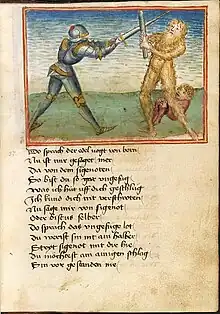 Do sprach der edel vogt von bern
Nu ist mir gesaget mer
Da von dem sigenoten
So bist du so gar ungefüg
Was ich hüt uff dich geschlug
Ich kund dich nit verschroten
Nu sage mir von sigenot
Oder
selber
Do sprach das ungefüge lot
Du
sin int am halber
Stryt sigenot mit dir hie
Du möchtest am ainigen schlag
Ein vor gestanden nie